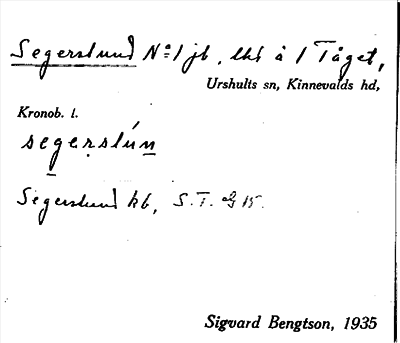 Segerslund Nº 1 jb, lht å 1 Tåget,
Urshults sn, Kinnevalds hd,
Kronob. l.
segerslún
Segerslund kb, S.T. 15.
Sigvard Bengtson, 1935